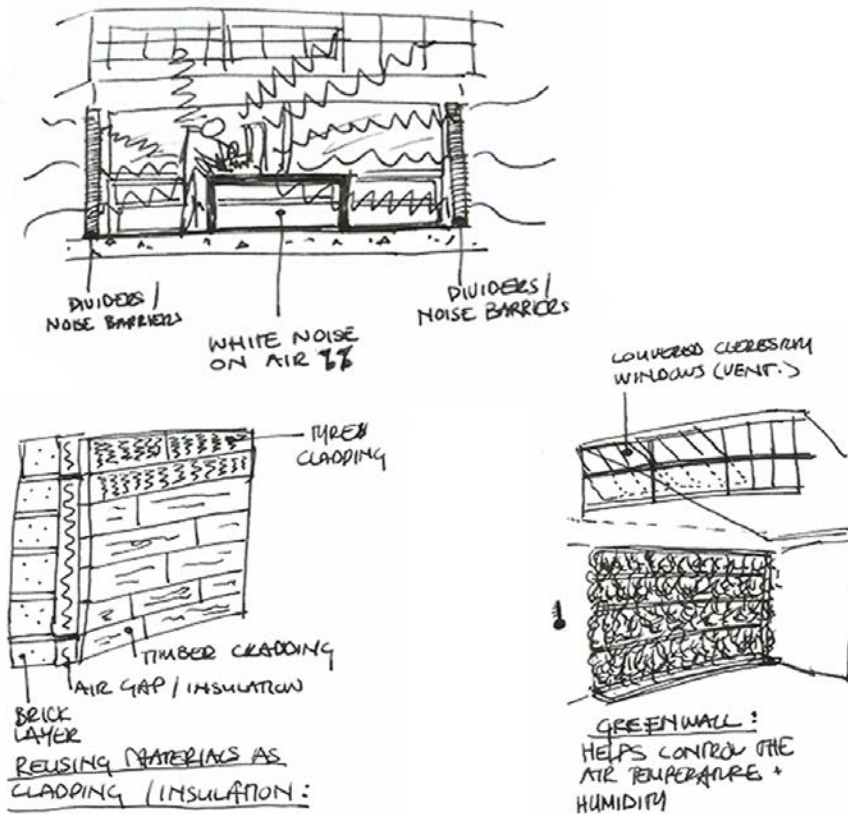 DIVIDERS /
NOISE BARRIERS
WHITE NOISE
ON AIR
DIVIDERS /
NOISE BARRIERS
TYRES
CLADDING
TIMBER CLADDING
AIR GAP / INSULATION
BRICK
LAYER
REUSING MATERIALS AS
CLADDING / INSULATION :
LOUVERED CLERESTORY
WINDOWS (VENT.)
GREENWALL :
HELPS CONTROL THE
AIR TEMPERATURE +
HUMIDITY